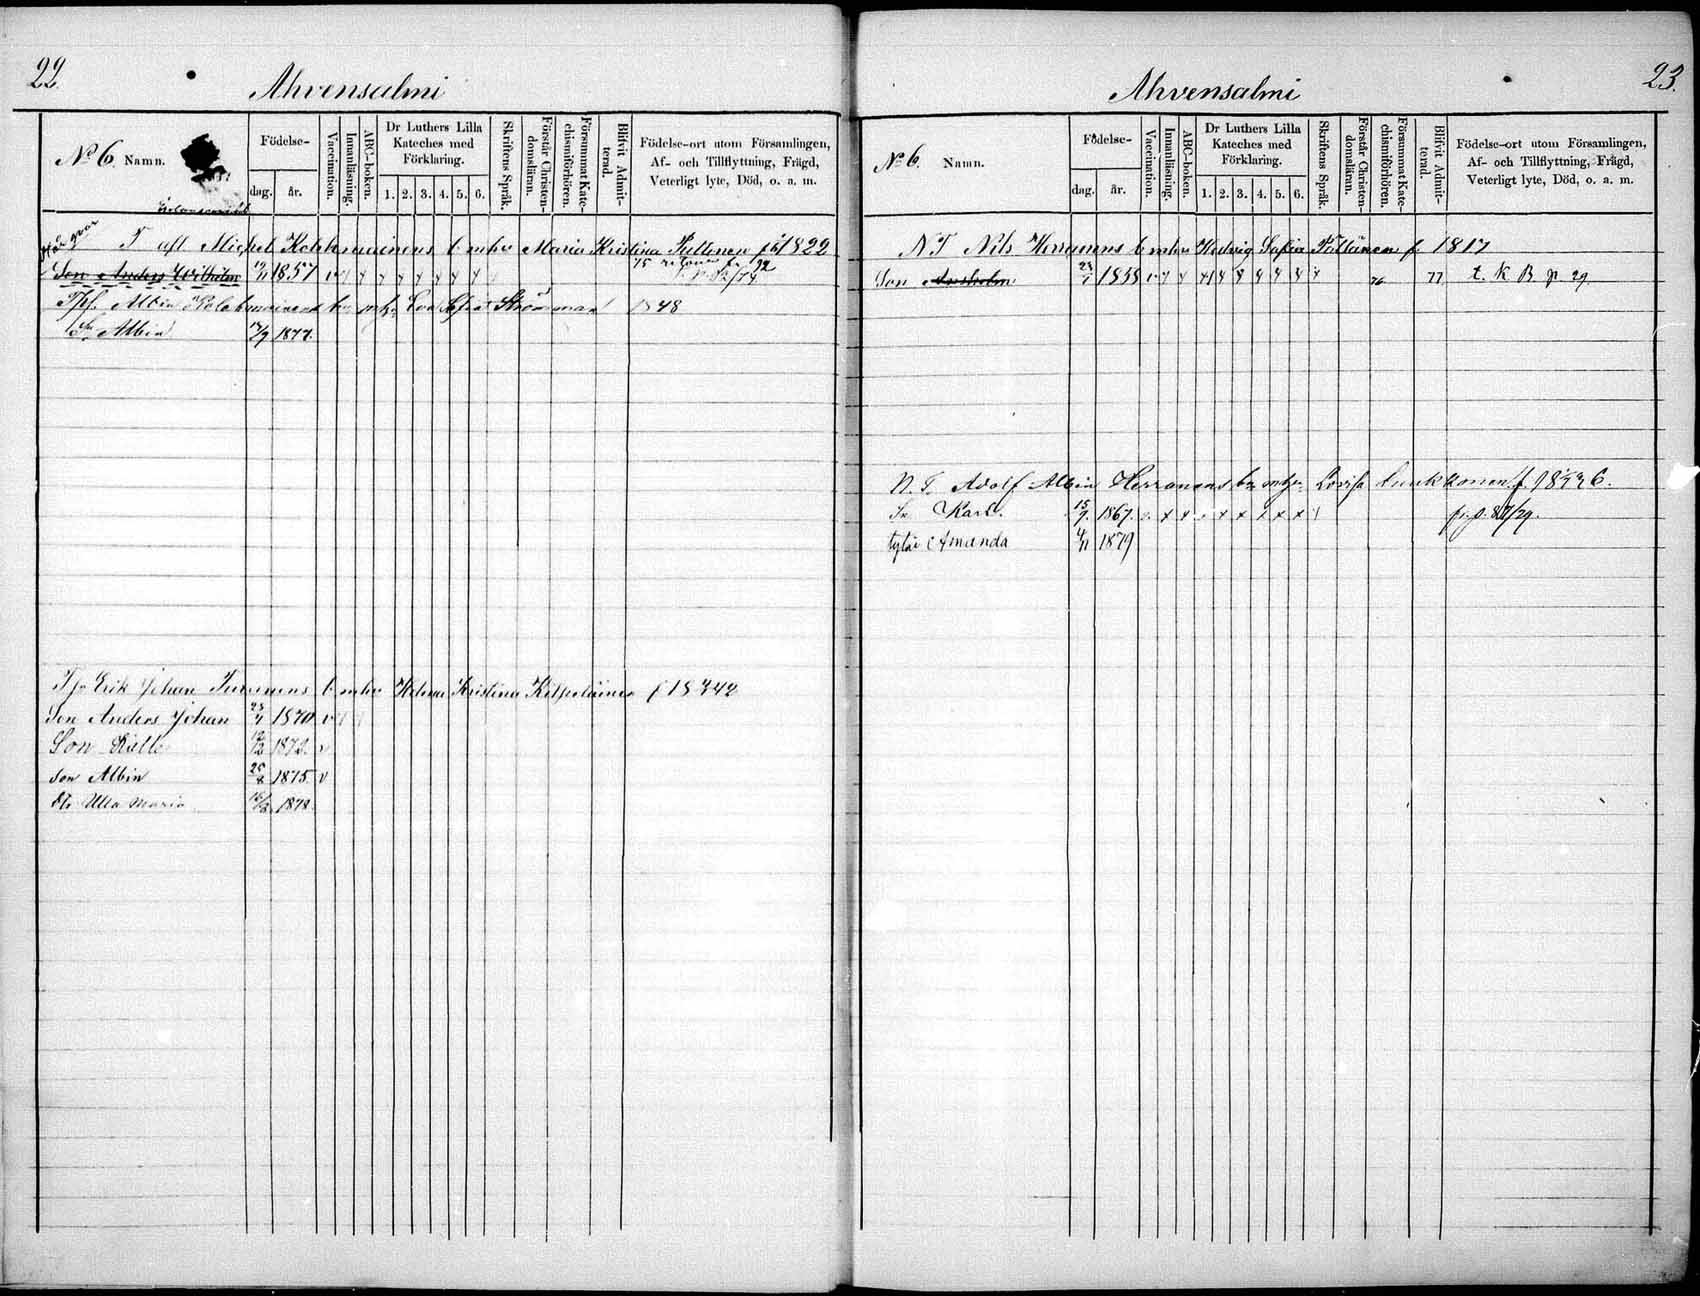 22.
Ahvensalmi
No 6. Namn.
Födelse-
dag. år.
Vaccination.
Innanläsning.
ABC-boken.
Dr Luthers Lilla Kateches med Förklaring.
1. 2. 3. 4. 5. 6.
Skriftens Språk.
Förstår Christendomsläran.
Försummat Katechismiförhören.
Blifvit Admitterad.
Födelse-ort utom Församlingen,
Af- och Tillflyttning, Frägd,
Veterligt lyte, Död, o. a. m.
T afl Michel Kolehmainens b mhu Maria Kristina Pultonen f 1822
Son Anders Wilhelm 1857 v
Albin Kolehmainens Eva Strömman 1848
Sn Albin 1877.
Tf Erik Johan Turunens b mhu Helena Kristina f 1842
Son Anders Johan 1870 v
Son Kalle 12/2 1872. v
Son Albin 25/8 1875 v
dtr Ulla Maria 1878.
Ahvensalmi
23.
No 6. Namn.
Födelse-
dag. år.
Vaccination.
Innanläsning.
ABC-boken.
Dr Luthers Lilla Kateches med Förklaring.
1. 2. 3. 4. 5. 6.
Skriftens Språk.
Förstår Christendomsläran.
Försummat Katechismiförhören.
Blifvit Admitterad.
Födelse-ort utom Församlingen,
Af- och Tillflyttning, Frägd,
Veterligt lyte, Död, o. a. m.
N.T Nils Herranens b mhu Hedvig Sofia f 1817
Son 1858 76 77 t. K B. p. 29
N. T. Adolf Albin Herranens Lovisa f 1836.
Sn Karl. 15/7. 1867.
Amanda 4/11 1879